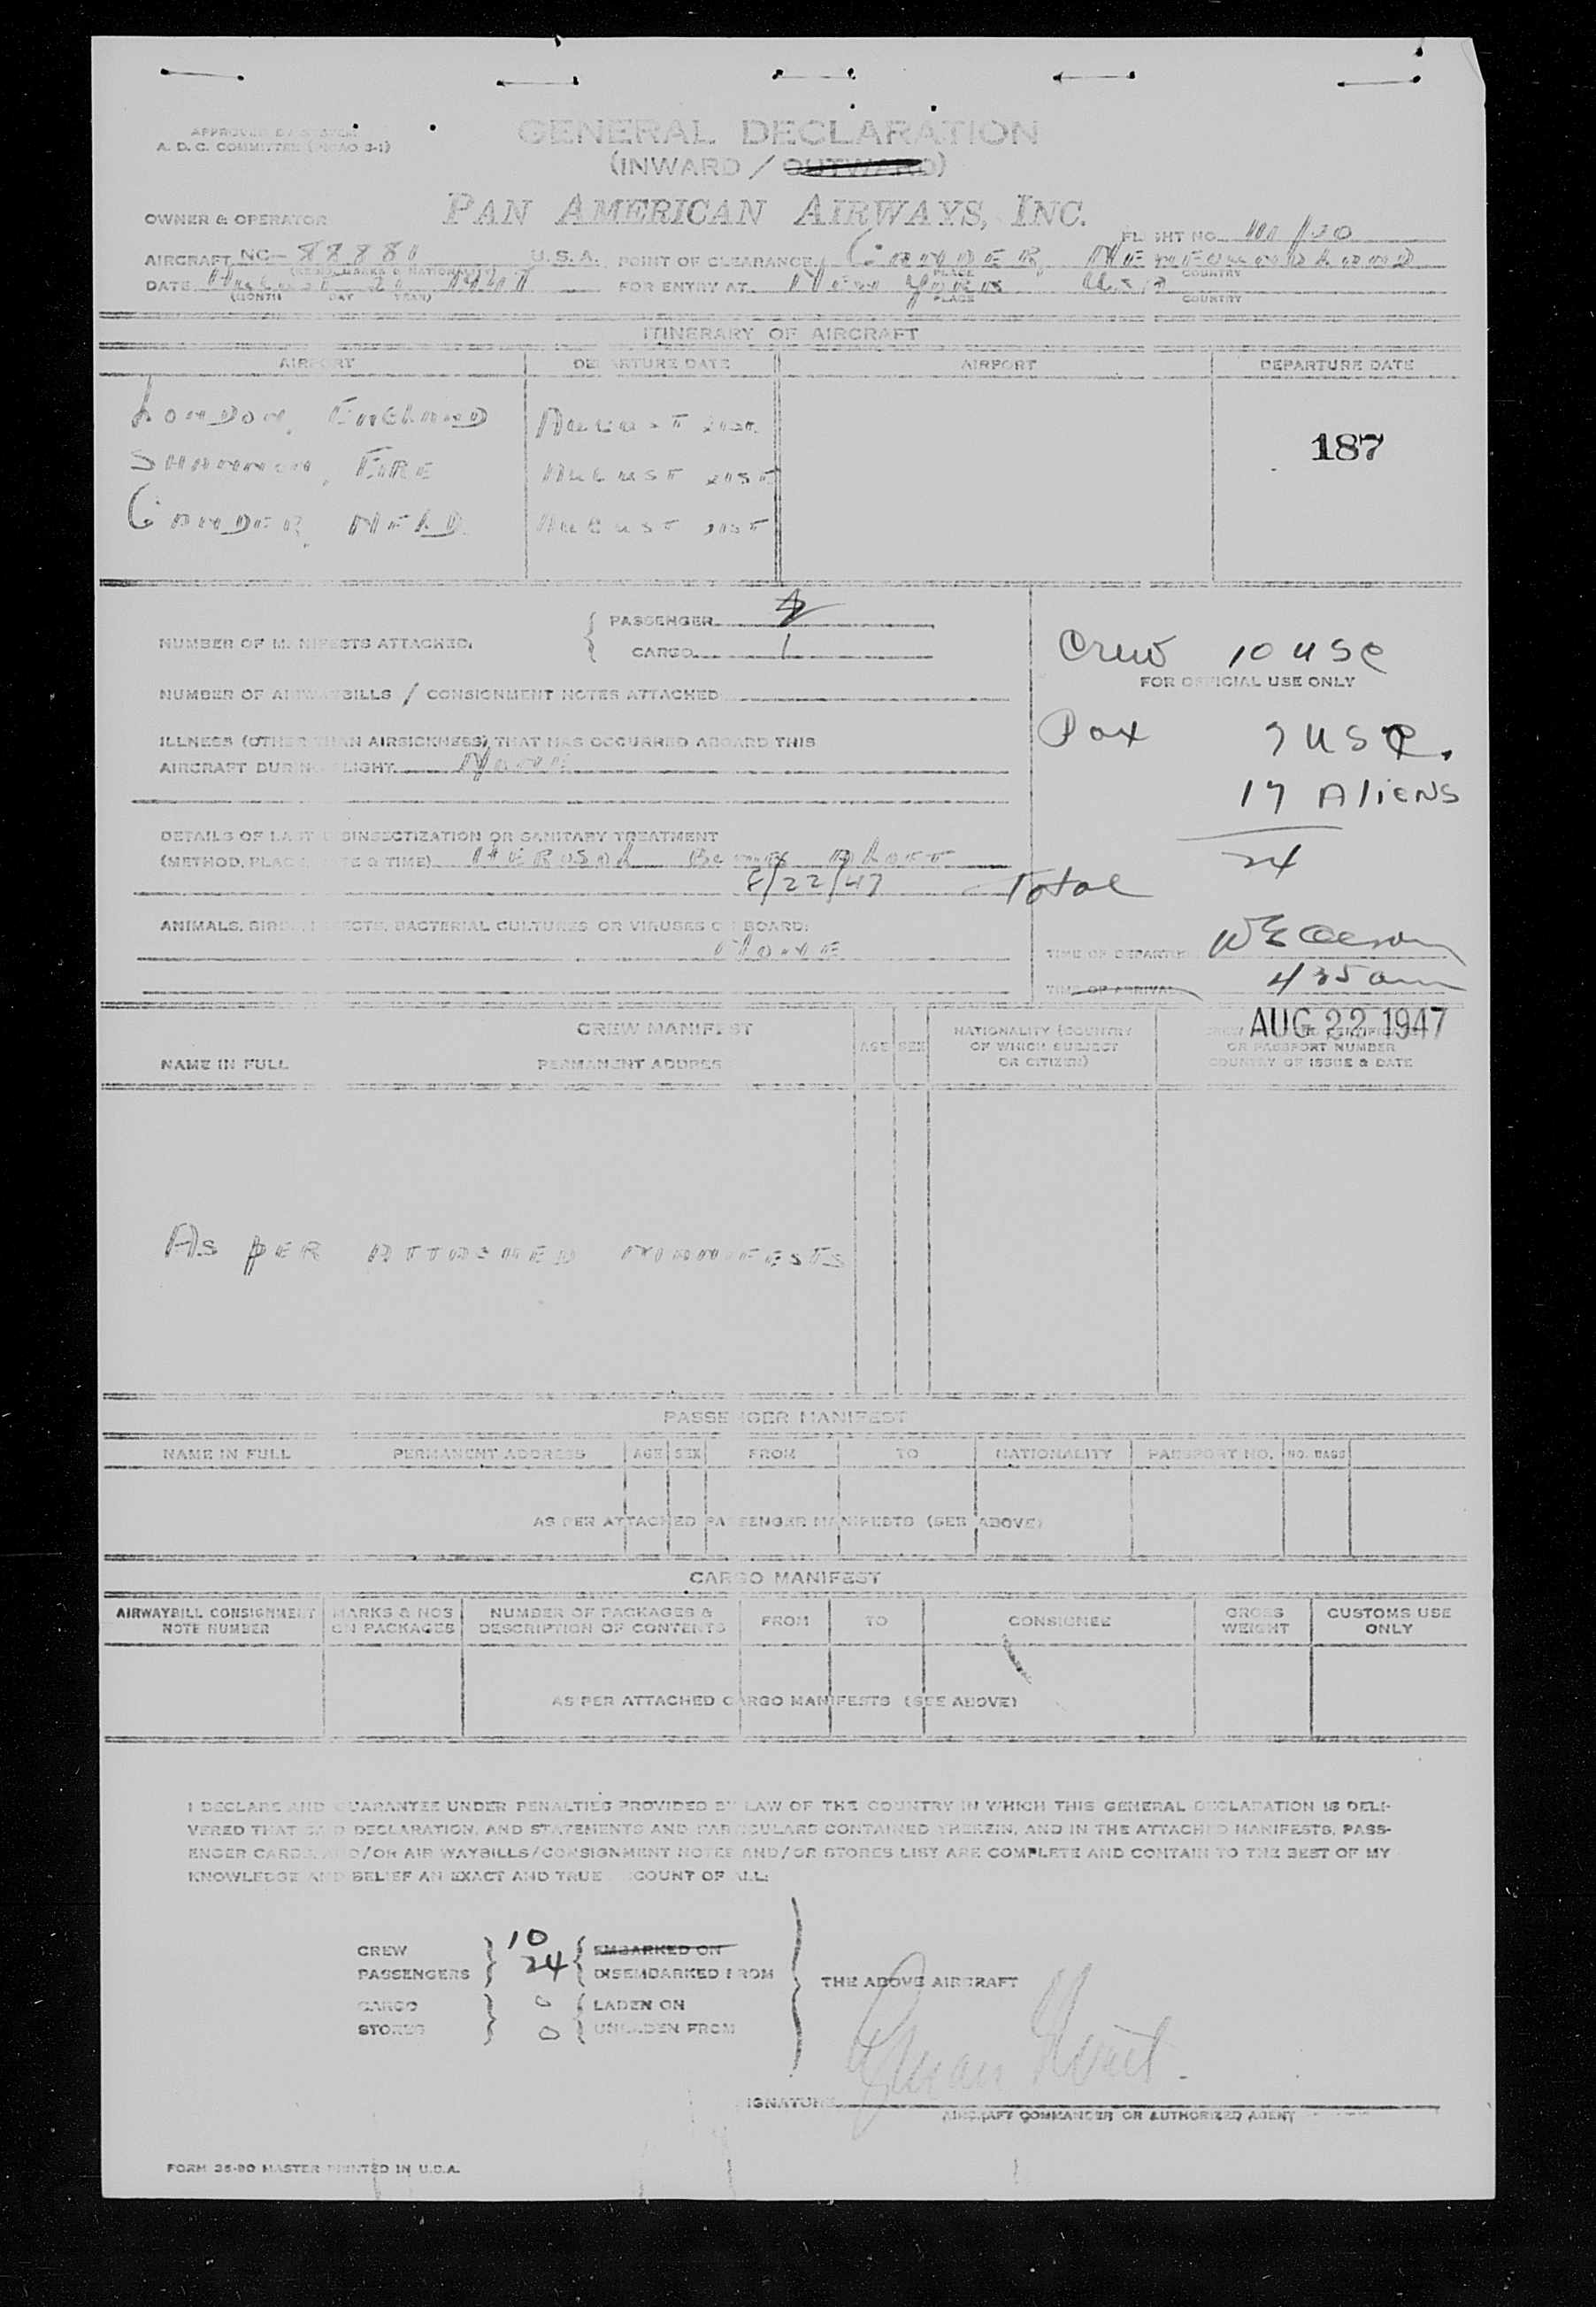 APPROVED BY
A. D. C. COMMITTEE (PICAO 3-1)
GENERAL DECLARATION
(INWARD / OUTWARD)
OWNER & OPERATOR PAN AMERICAN AIRWAYS, INC.
FLIGHT NO.
AIRCRAFT NC- 88880 U.S.A. POINT OF CLEARANCE GANDER, NEWFOUNDLAND
(REGIS. MARKS & NATIONALITY) PLACE COUNTRY
DATE AUGUST 21 1947 FOR ENTRY AT NEW YORK USA
(MONTH DAY YEAR) PLACE COUNTRY
ITINERARY OF AIRCRAFT
AIRPORT DEPARTURE DATE AIRPORT DEPARTURE DATE
LONDON, ENGLAND AUGUST 21ST
187
SHANNON, EIRE AUGUST 21ST
GANDER, NFLD. AUGUST 21ST
NUMBER OF MANIFESTS ATTACHED: PASSENGER
CARGO 1
Crew 10 USC
FOR OFFICIAL USE ONLY
NUMBER OF AIRWAYBILLS / CONSIGNMENT NOTES ATTACHED
Pax 7 USC.
17 Aliens
24
Total
ILLNESS (OTHER THAN AIRSICKNESS) THAT HAS OCCURRED ABOARD THIS
AIRCRAFT DURING FLIGHT NONE
DETAILS OF LAST DISINSECTIZATION OR SANITARY TREATMENT
(METHOD, PLACE, DATE & TIME) AEROSOL BOMB ALOFT
8/22/47
ANIMALS, BIRDS, INSECTS, BACTERIAL CULTURES OR VIRUSES ON BOARD:
NONE
TIME OF DEPARTURE
TIME OF ARRIVAL 4 35 am
AUG 22 1947
CREW MANIFEST
NAME IN FULL PERMANENT ADDRES AGE SEX NATIONALITY (COUNTRY OF WHICH SUBJECT OR CITIZEN)
OR PASSPORT NUMBER
COUNTRY OF ISSUE & DATE
AS PER ATTACHED MANIFESTS
PASSENGER MANIFEST
NAME IN FULL PERMANENT ADDRESS AGE SEX FROM TO NATIONALITY PASSPORT NO. NO. BAGS
AS PER ATTACHED PASSENGER MANIFESTS (SEE ABOVE)
CARGO MANIFEST
AIRWAYBILL CONSIGNMENT NOTE NUMBER MARKS & NOS ON PACKAGES NUMBER OF PACKAGES & DESCRIPTION OF CONTENTS FROM TO CONSIGNEE GROSS WEIGHT CUSTOMS USE ONLY
AS PER ATTACHED CARGO MANIFESTS (SEE ABOVE)
I DECLARE AND GUARANTEE UNDER PENALTIES PROVIDED BY LAW OF THE COUNTRY IN WHICH THIS GENERAL DECLARATION IS DELI-
VERED THAT SAID DECLARATION, AND STATEMENTS AND PARTICULARS CONTAINED THEREIN, AND IN THE ATTACHED MANIFESTS, PASS-
ENGER CARDS, AND/OR AIR WAYBILLS/CONSIGNMENT NOTES AND/OR STORES LIST ARE COMPLETE AND CONTAIN TO THE BEST OF MY
KNOWLEDGE AND BELIEF AN EXACT AND TRUE ACCOUNT OF ALL:
CREW 10 EMBARKED ON
PASSENGERS 24 DISEMBARKED FROM THE ABOVE AIRCRAFT
CARGO 0 LADEN ON
STORES 0 UNLADEN FROM
SIGNATURE
AIRCRAFT COMMANDER OR AUTHORIZED AGENT
FORM 36-90 MASTER PRINTED IN U.S.A.